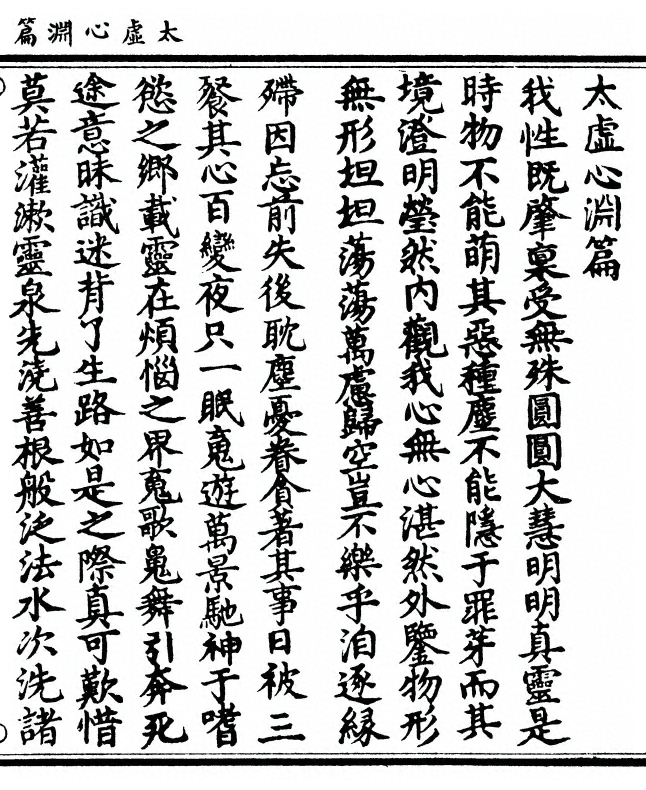 太虛心淵篇
太虛心淵篇
我性既肇稟受無殊圓圓大慧明明真靈是
時物不能萌其惡種塵不能隱于罪芽而其
境澄明瑩然內觀我心無心湛然外鑒物形
無形坦坦蕩蕩萬慮歸空豈不樂乎洎逐緣
殢因忘前失後耽塵憂眷貪著其事日被三
餮其心百變夜只一眠䰟遊萬景馳神于嗜
慾之鄉載靈在煩惱之界䰟歌鬼舞引奔死
途意昧識迷背了生路如是之際真可歎惜
莫若灌漱靈泉先澆善根般泛法水次洗諸